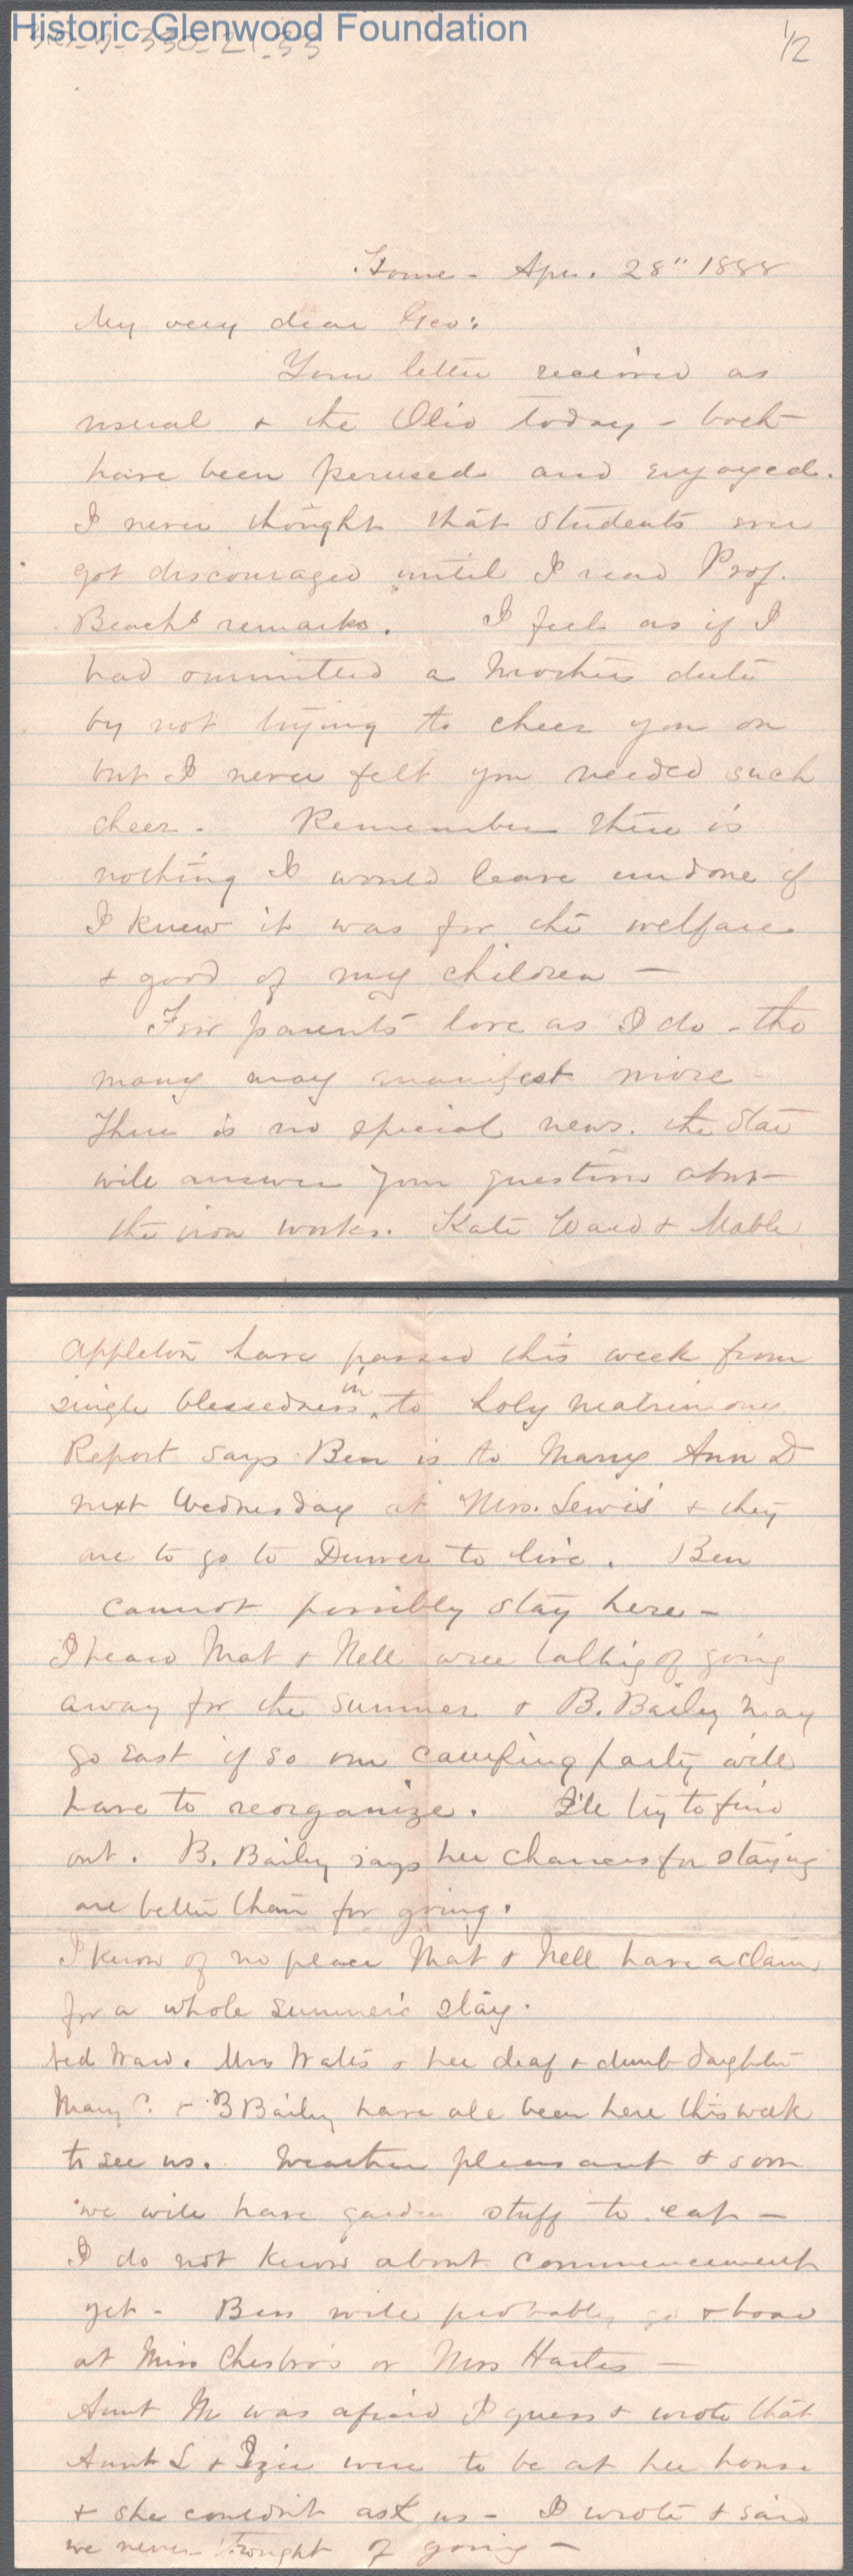 Historic Glenwood Foundation
1/2
Home - Apr. 28" 1888
My very dear Geo:
Your letter received as
usual & the Olio today - both
have been perused and enjoyed.
I never thought that students ever
got discouraged until I read Prof.
Beach's remarks. I feel as if I
had ommitted a Mothers duty
by not trying to cheer you on
but I never felt you needed such
cheer. Remember there is
nothing I would leave undone if
I knew it was for the welfare
& good of my children -
Few parents love as I do - tho
many may manifest more -
There is no special news. the Star
will answer your question about
the iron works. Kate Ward & Mable
Appleton have passed this week from
single blessedness in to holy matrimony
Report says Ben is to Marry Ann D
next Wednesday at Mrs. Lewis' & they
are to go to Denver to live. Ben
cannot possibly stay here -
I heard Mat & Nell were talking of going
away for the summer & B. Bailey may
go East if so our camping party will
have to reorganize. I'le try to find
out. B. Bailey says her chances for staying
are better than for going.
I know of no place Mat & Nell have a claim
for a whole summer's stay.
Ned Ward. Mrs Wales & her deaf & dumb daughter
Mary C. & B Bailey have all been here this week
to see us. Weather pleasant & soon
we will have garden stuff to eat -
I do not know about commencement
yet - Bess will probably go & board
at Miss Chesbro's or Mrs Hartes -
Aunt M was afraid I guess & wrote that
Aunt L & Izie were to be at her house
& she couldn't ask us - I wrote & said
we never thought of going -